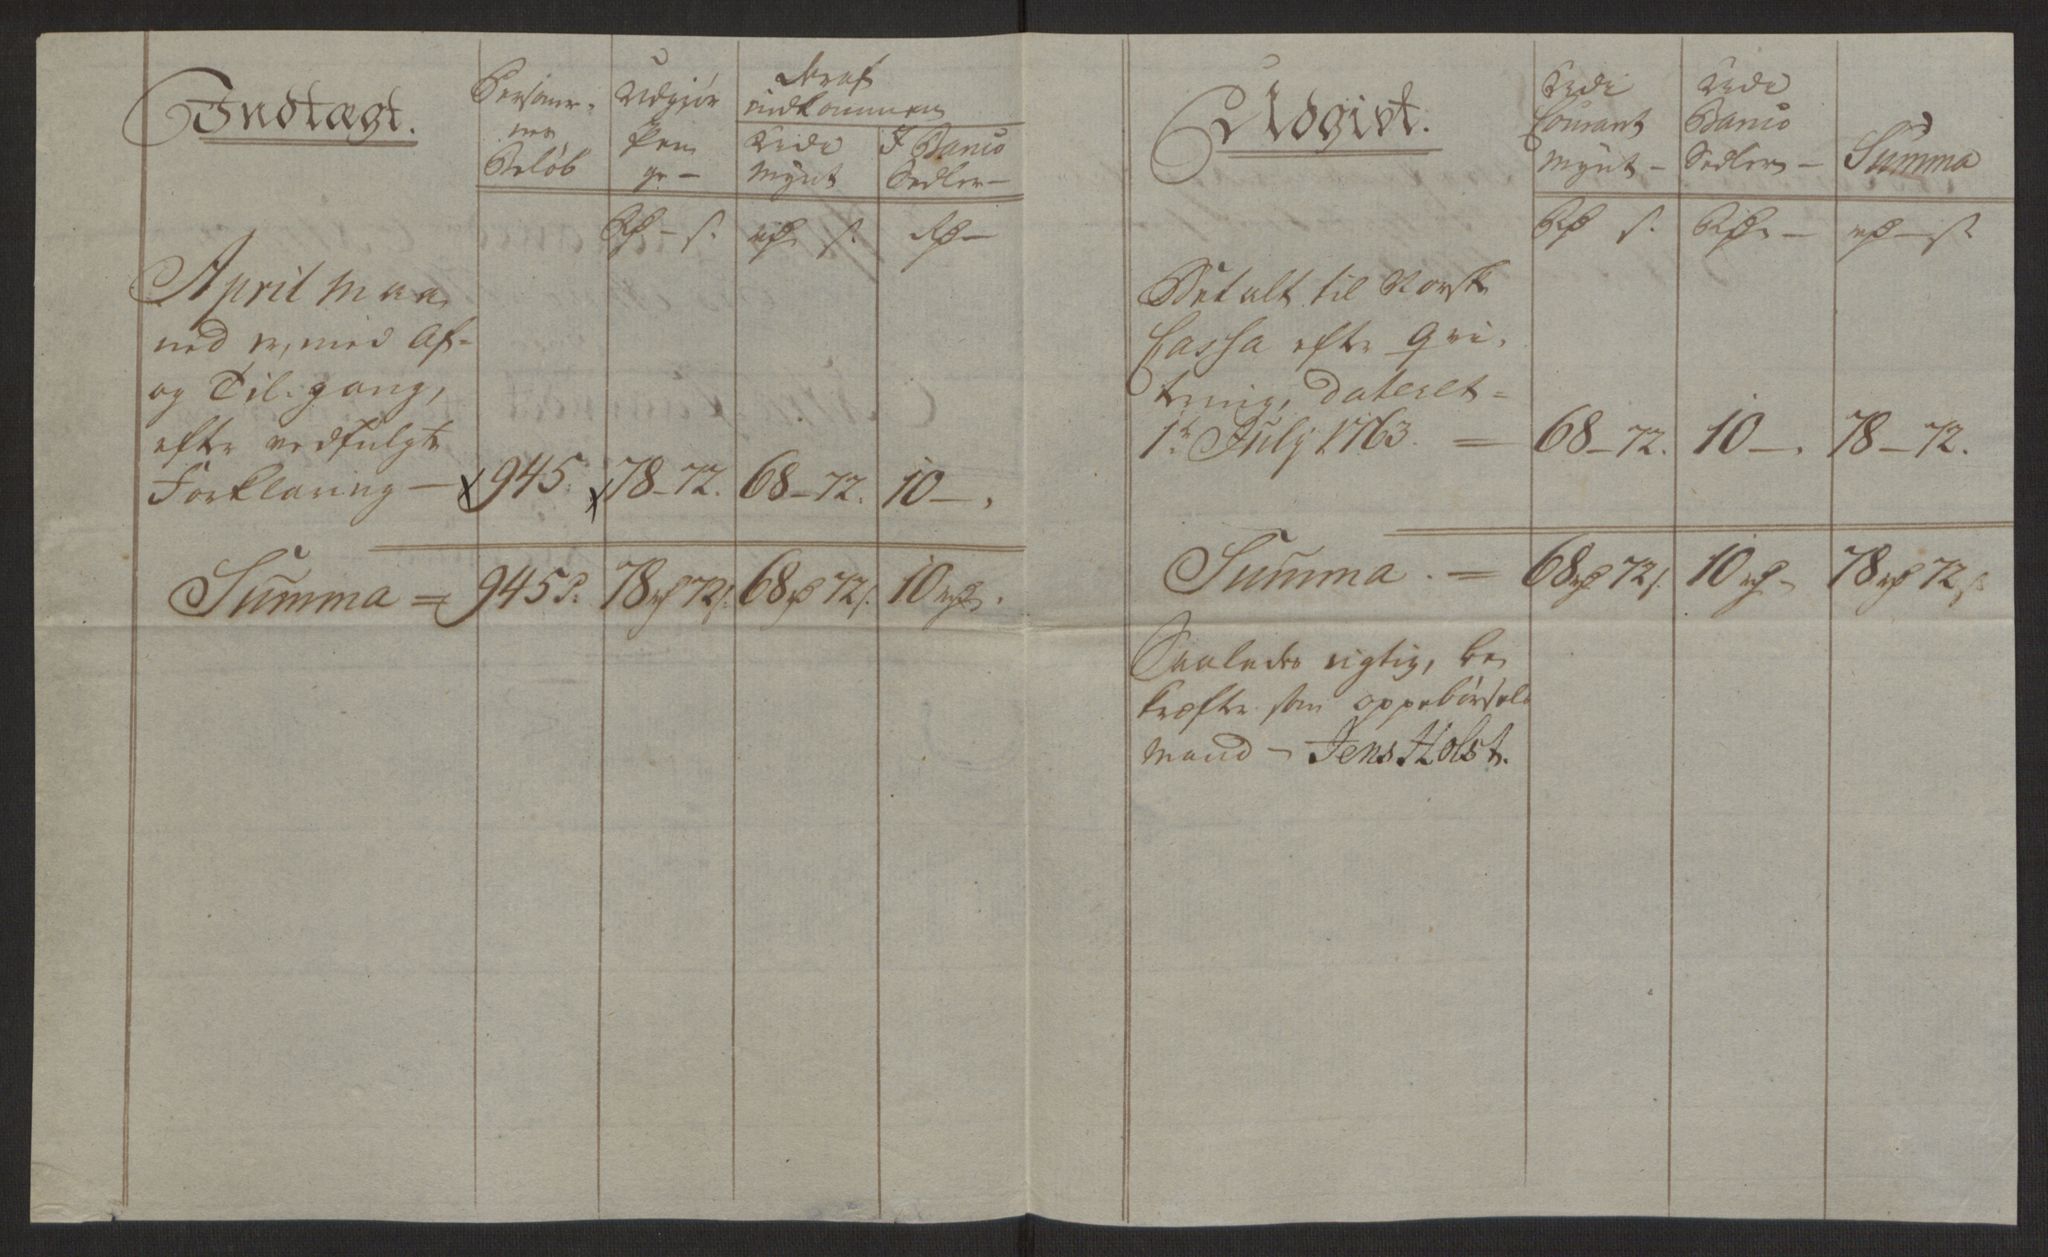 Indtægt.
Personer-
nes
Beløb
Udgiør
Pen
ge —
deraf
indkommen
Rede
Mynt
I Banco
Sedler —
Rd — s.
rd s.
Rd —
April Maa
ned er, med Af-
og Til-gang,
efter vedfulgte
Forklaring — 945. 78 — 72. 68 — 72. 10 — .
Summa = 945 P. 78 rd 72 s. 68 rd 72 s. 10 rd.
Udgivt.
Rede
Courant
Mynt —
Rede
Banco
Sedler —
Summa
Rd s.
Rd —
rd — s.
Betalt til Norske
Cassa efter Qvi-
tering, Dateret =
1te July 1763. = 68 — 72. 10 — . 78 — 72.
Summa . = 68 rd 72 s. 10 rd — 78 rd 72 s.
Saaledes rigtig, be
kræfter som oppebørsels
Mand — Jens Holst.